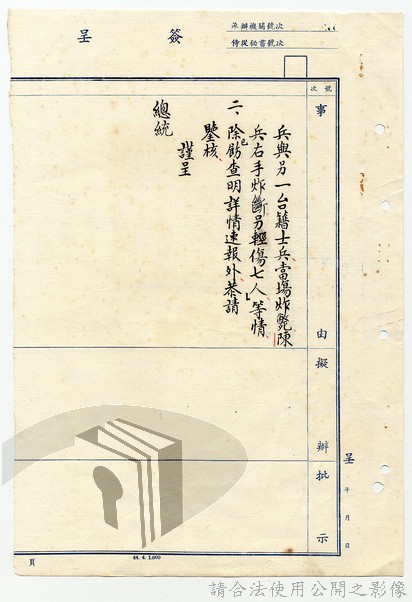 簽呈
承辦機關號次
侍從秘書號次
號次
事由
擬辦
批示
兵與另一台籍士兵當場炸斃陳
兵右手炸斷另輕傷七人」等情
二、除已飭查明詳情速報外恭請
鑒核
謹呈
總統
呈 年 月 日
頁
44. 4. 1,000
請合法使用公開之影像